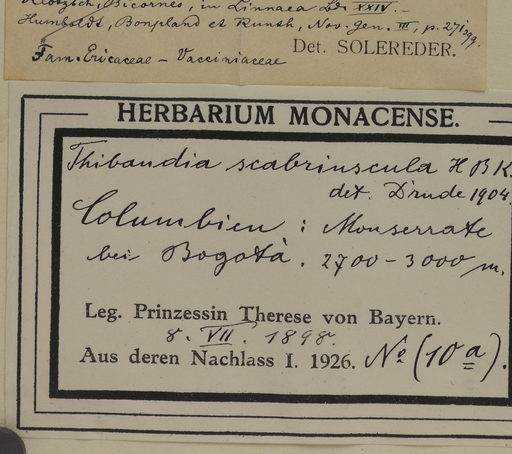 Klotzsch, Bicornes, in Linnaea Bd. XXIV. –
Humboldt, Bonpland et Kunth, Nov. Gen. III, p. 271
Det. SOLEREDER.
Fam. Ericaceae – Vacciniaceae
HERBARIUM MONACENSE.
Thibaudia scabriuscula H B K.
det. Drude 1904.
Columbien : Monserrate
bei Bogotà. 2700 – 3000 m.
Leg. Prinzessin Therese von Bayern.
8. VII. 1898.
Aus deren Nachlass I. 1926. No (10a).